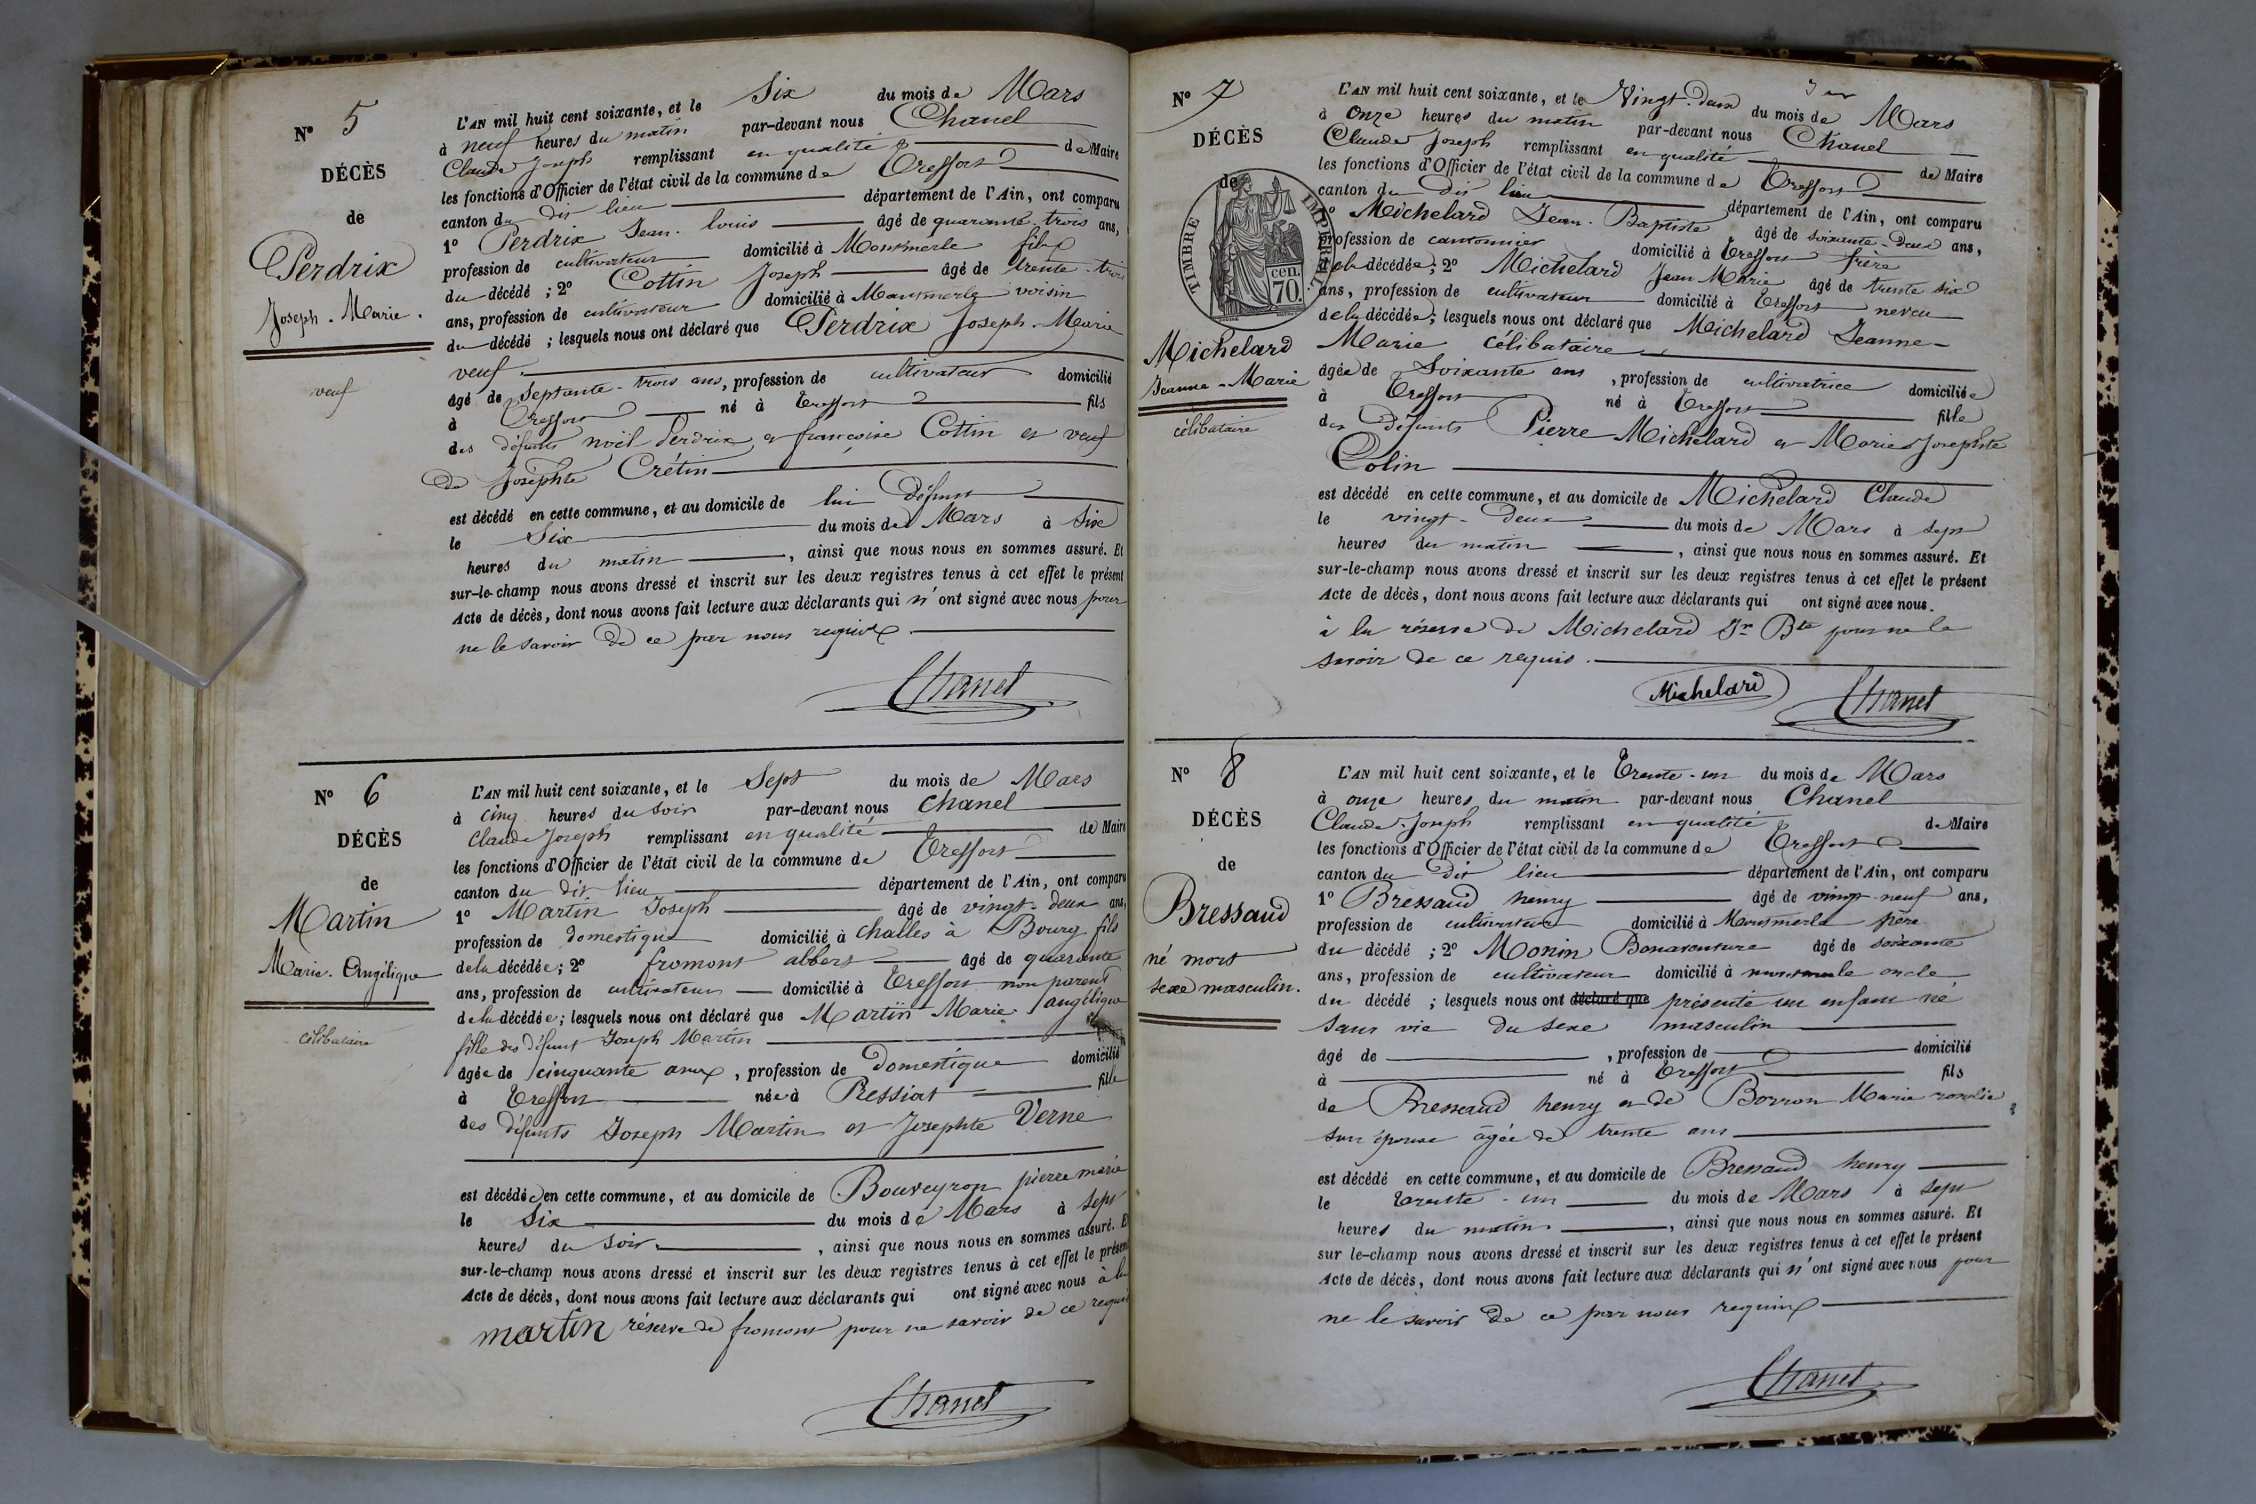 N° 5
DÉCÈS
de
Perdrix
Joseph-Marie.
veuf
L'AN mil huit cent soixante, et le Six du mois de Mars
à neuf heures du matin par-devant nous Chanel
Claude Joseph remplissant en qualité de Maire
les fonctions d'Officier de l'état civil de la commune de Treffort
canton du dit lieu département de l'Ain, ont comparu
1° Perdrix Jean-louis âgé de quarante-trois ans,
profession de cultivateur domicilié à Montmerle fils
du décédé ; 2° Cottin Joseph âgé de trente-trois
ans, profession de cultivateur domicilié à Montmerle voisin
du décédé ; lesquels nous ont déclaré que Perdrix Joseph-Marie
veuf
âgé de Septante-trois ans, profession de cultivateur domicilié
à Treffort né à Treffort fils
des défunts noël Perdrix et françoise Cottin et veuf
de Josephte Crétin
est décédé en cette commune, et au domicile de lui défunt
le Six du mois de Mars à Six
heures du matin , ainsi que nous nous en sommes assuré. Et
sur-le-champ nous avons dressé et inscrit sur les deux registres tenus à cet effet le présent
Acte de décès, dont nous avons fait lecture aux déclarants qui n'ont signé avec nous pour
ne le savoir de ce par nous requis
Chanel
N° 6
DÉCÈS
de
Martin
Marie-Angélique
célibataire
L'AN mil huit cent soixante, et le Sept du mois de Mars
à cinq heures du soir par-devant nous Chanel
Claude Joseph remplissant en qualité de Maire
les fonctions d'Officier de l'état civil de la commune de Treffort
canton du dit lieu département de l'Ain, ont comparu
1° Martin Joseph âgé de vingt-deux ans,
profession de domestique domicilié à Challes à Bourg fils
de la décédée ; 2° fromont albert âgé de quarante
ans, profession de cultivateur domicilié à Treffort non parent
de la décédée ; lesquels nous ont déclaré que Martin Marie angélique
fille des défunt Joseph Martin
âgée de cinquante ans , profession de Domestique domicilié
à Treffort née à Pressiat fille
des défunts Joseph Martin et Josephte Verne
est décédée en cette commune, et au domicile de Bouveyron pierre marie
le Six du mois de Mars à Sept
heures du soir , ainsi que nous nous en sommes assuré. Et
sur-le-champ nous avons dressé et inscrit sur les deux registres tenus à cet effet le présent
Acte de décès, dont nous avons fait lecture aux déclarants qui ont signé avec nous à la
martin réserve de fromont pour ne savoir de ce requis
Chanel
N° 7
DÉCÈS
de
TIMBRE IMPÉRIAL.
cen.
70.
Michelard
Jeanne-Marie
célibataire
L'AN mil huit cent soixante, et le Vingt-deux du mois de Mars
à Onze heures du matin par-devant nous Chanel
Claude Joseph remplissant en qualité de Maire
les fonctions d'Officier de l'état civil de la commune de Treffort
canton du dit lieu département de l'Ain, ont comparu
1° Michelard Jean-Baptiste âgé de soixante-deux ans,
profession de cantonnier domicilié à Treffort frère
de la décédée ; 2° Michelard Jean Marie âgé de trente six
ans, profession de cultivateur domicilié à Treffort neveu
de la décédée ; lesquels nous ont déclaré que Michelard Jeanne-
Marie célibataire
âgée de Soixante ans , profession de cultivatrice domiciliée
à Treffort né à Treffort fille
des défunts Pierre Michelard et Marie Josephte
Colin
est décédé en cette commune, et au domicile de Michelard Claude
le vingt-deux du mois de Mars à sept
heures du matin , ainsi que nous nous en sommes assuré. Et
sur-le-champ nous avons dressé et inscrit sur les deux registres tenus à cet effet le présent
Acte de décès, dont nous avons fait lecture aux déclarants qui ont signé avec nous.
à la réserve de Michelard Jn Bte pour ne le
savoir de ce requis.
Michelard Chanel
N° 8
DÉCÈS
de
Bressaud
né mort
sexe masculin.
L'AN mil huit cent soixante, et le Trente-un du mois de Mars
à onze heures du matin par-devant nous Chanel
Claude-Joseph remplissant en qualité de Maire
les fonctions d'Officier de l'état civil de la commune de Treffort
canton du dit lieu département de l'Ain, ont comparu
1° Bressaud henry âgé de vingt-neuf ans,
profession de cultivateur domicilié à Montmerle père
du décédé ; 2° Monin Bonaventure âgé de soixante
ans, profession de cultivateur domicilié à montmerle oncle
du décédé ; lesquels nous ont déclaré que présenté un enfant né
sans vie du sexe masculin
âgé de , profession de domicilié
à né à Treffort fils
de Bressaud henry et de Borron Marie rosalie
son épouse âgée de trente ans
est décédé en cette commune, et au domicile de Bressaud henry
le trente-un du mois de Mars à sept
heures du matin , ainsi que nous nous en sommes assuré. Et
sur le-champ nous avons dressé et inscrit sur les deux registres tenus à cet effet le présent
Acte de décès, dont nous avons fait lecture aux déclarants qui n'ont signé avec nous pour
ne le savoir de ce par nous requis
Chanel